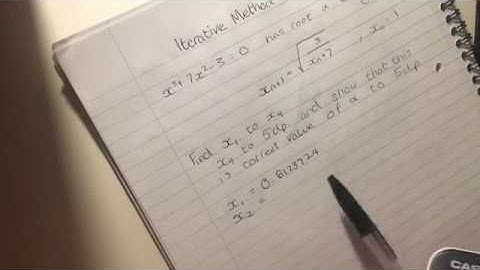 Iterative Method
x³ + 7x² - 3 = 0 has root α
xₙ₊₁ = √(3/(xₙ+7)) , x = 1
Find x₁ to x₄
x₄ to 5dp and show that this
is correct value of α to 5dp
x₁ = 0.8123724
x₂ =
CAS